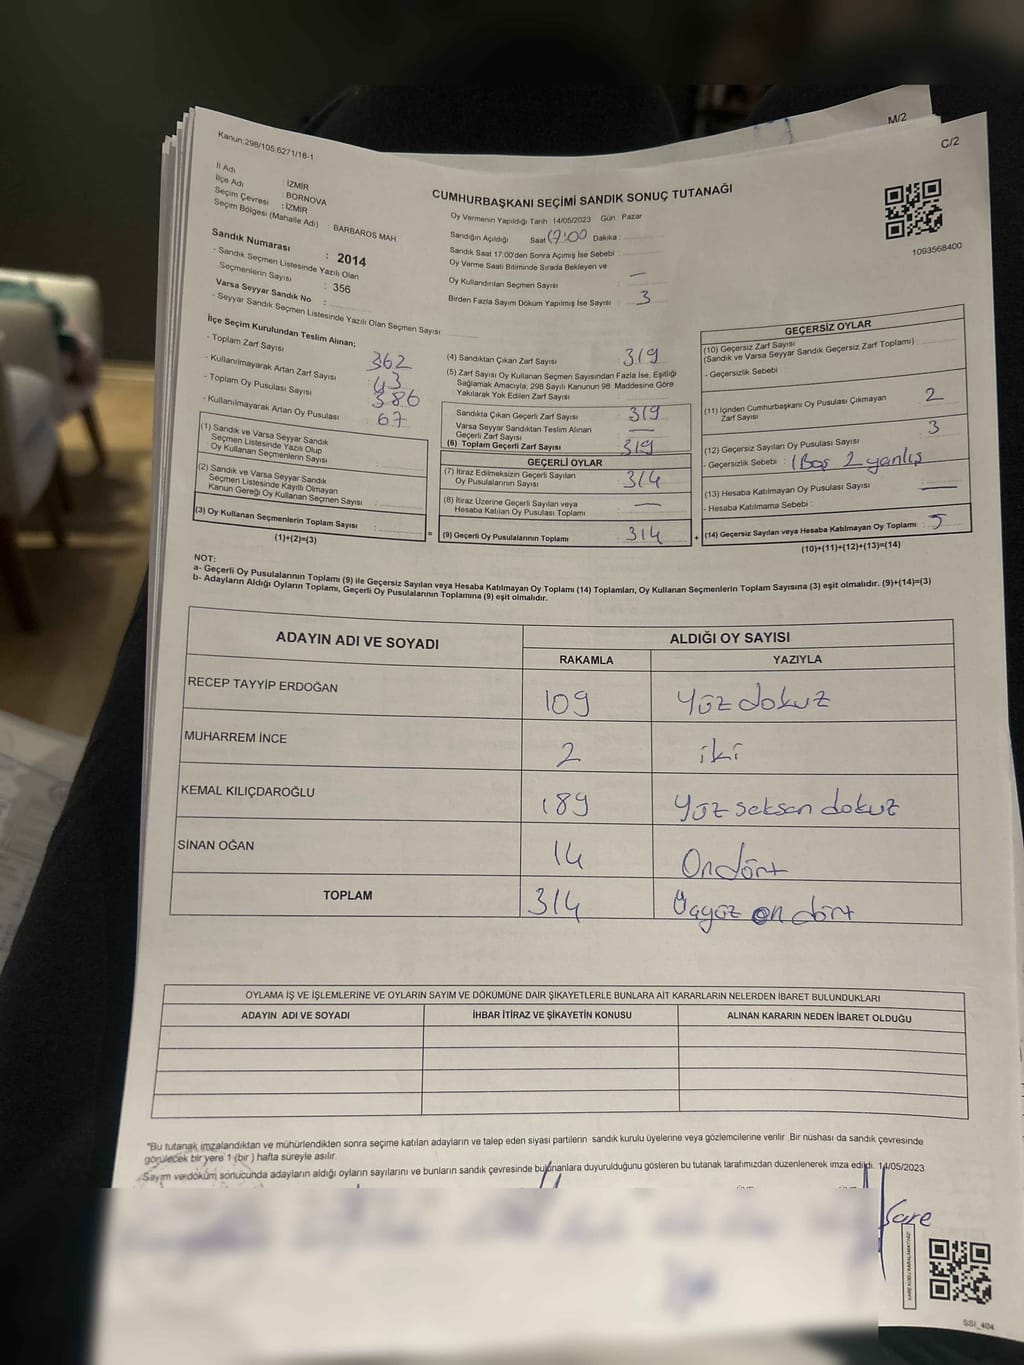 M/2
C/2
Kanun,298/105,6271/18-1
İl Adı : İZMİR
İlçe Adı : BORNOVA
Seçim Çevresi : İZMİR
Seçim Bölgesi (Mahalle Adı) : BARBAROS MAH.
Sandık Numarası : 2014
- Sandık Seçmen Listesinde Yazılı Olan
Seçmenlerin Sayısı : 356
Varsa Seyyar Sandık No :
- Seyyar Sandık Seçmen Listesinde Yazılı Olan Seçmen Sayısı :
CUMHURBAŞKANI SEÇİMİ SANDIK SONUÇ TUTANAĞI
Oy Vermenin Yapıldığı Tarih : 14/05/2023 Gün : Pazar
Sandığın Açıldığı Saat 17:00 Dakika :
Sandık Saat 17.00'den Sonra Açımış İse Sebebi :
Oy Verme Saati Bitiminde Sırada Bekleyen ve
Oy Kullandırılan Seçmen Sayısı : —
Birden Fazla Sayım Döküm Yapılmış İse Sayısı : 3
1093568400
İlçe Seçim Kurulundan Teslim Alınan;
- Toplam Zarf Sayısı : 362
- Kullanılmayarak Artan Zarf Sayısı : 43
- Toplam Oy Pusulası Sayısı : 386
- Kullanılmayarak Artan Oy Pusulası : 67
(1) Sandık ve Varsa Seyyar Sandık
Seçmen Listesinde Yazılı Olup
Oy Kullanan Seçmenlerin Sayısı :
(2) Sandık ve Varsa Seyyar Sandık
Seçmen Listesinde Kayıtlı Olmayan
Kanun Gereği Oy Kullanan Seçmen Sayısı :
(3) Oy Kullanan Seçmenlerin Toplam Sayısı :
(1)+(2)=(3)
=
(4) Sandıktan Çıkan Zarf Sayısı : 319
(5) Zarf Sayısı Oy Kullanan Seçmen Sayısından Fazla İse, Eşitliği
Sağlamak Amacıyla; 298 Sayılı Kanunun 98. Maddesine Göre
Yakılarak Yok Edilen Zarf Sayısı :
Sandıkta Çıkan Geçerli Zarf Sayısı : 319
Varsa Seyyar Sandıktan Teslim Alınan
Geçerli Zarf Sayısı : —
(6) Toplam Geçerli Zarf Sayısı : 319
GEÇERLİ OYLAR
(7) İtiraz Edilmeksizin Geçerli Sayılan
Oy Pusulalarının Sayısı : 314
(8) İtiraz Üzerine Geçerli Sayılan veya
Hesaba Katılan Oy Pusulası Toplamı : —
(9) Geçerli Oy Pusulalarının Toplamı : 314
+
GEÇERSİZ OYLAR
(10) Geçersiz Zarf Sayısı
(Sandık ve Varsa Seyyar Sandık Geçersiz Zarf Toplamı) :
- Geçersizlik Sebebi :
(11) İçinden Cumhurbaşkanı Oy Pusulası Çıkmayan
Zarf Sayısı : 2
(12) Geçersiz Sayılan Oy Pusulası Sayısı : 3
- Geçersizlik Sebebi : 1 Boş 2 yanlış
(13) Hesaba Katılmayan Oy Pusulası Sayısı : —
- Hesaba Katılmama Sebebi :
(14) Geçersiz Sayılan veya Hesaba Katılmayan Oy Toplamı : 5
(10)+(11)+(12)+(13)=(14)
NOT:
a- Geçerli Oy Pusulalarının Toplamı (9) ile Geçersiz Sayılan veya Hesaba Katılmayan Oy Toplamı (14) Toplamları, Oy Kullanan Seçmenlerin Toplam Sayısına (3) eşit olmalıdır. (9)+(14)=(3)
b- Adayların Aldığı Oyların Toplamı, Geçerli Oy Pusulalarının Toplamına (9) eşit olmalıdır.
ADAYIN ADI VE SOYADI ALDIĞI OY SAYISI
RAKAMLA YAZIYLA
RECEP TAYYİP ERDOĞAN 109 Yüz dokuz
MUHARREM İNCE 2 iki
KEMAL KILIÇDAROĞLU 189 Yüz seksen dokuz
SİNAN OĞAN 14 Ondört
TOPLAM 314 Üçyüz on dört
OYLAMA İŞ VE İŞLEMLERİNE VE OYLARIN SAYIM VE DÖKÜMÜNE DAİR ŞİKAYETLERLE BUNLARA AİT KARARLARIN NELERDEN İBARET BULUNDUKLARI
ADAYIN ADI VE SOYADI İHBAR İTİRAZ VE ŞİKAYETİN KONUSU ALINAN KARARIN NEDEN İBARET OLDUĞU
*Bu tutanak imzalandıktan ve mühürlendikten sonra seçime katılan adayların ve talep eden siyasi partilerin sandık kurulu üyelerine veya gözlemcilerine verilir. Bir nüshası da sandık çevresinde
görülecek bir yere 1 (bir) hafta süreyle asılır.
Sayım ve döküm sonucunda adayların aldığı oyların sayılarını ve bunların sandık çevresinde bulunanlara duyurulduğunu gösteren bu tutanak tarafımızdan düzenlenerek imza edildi. 14/05/2023
SSI_404